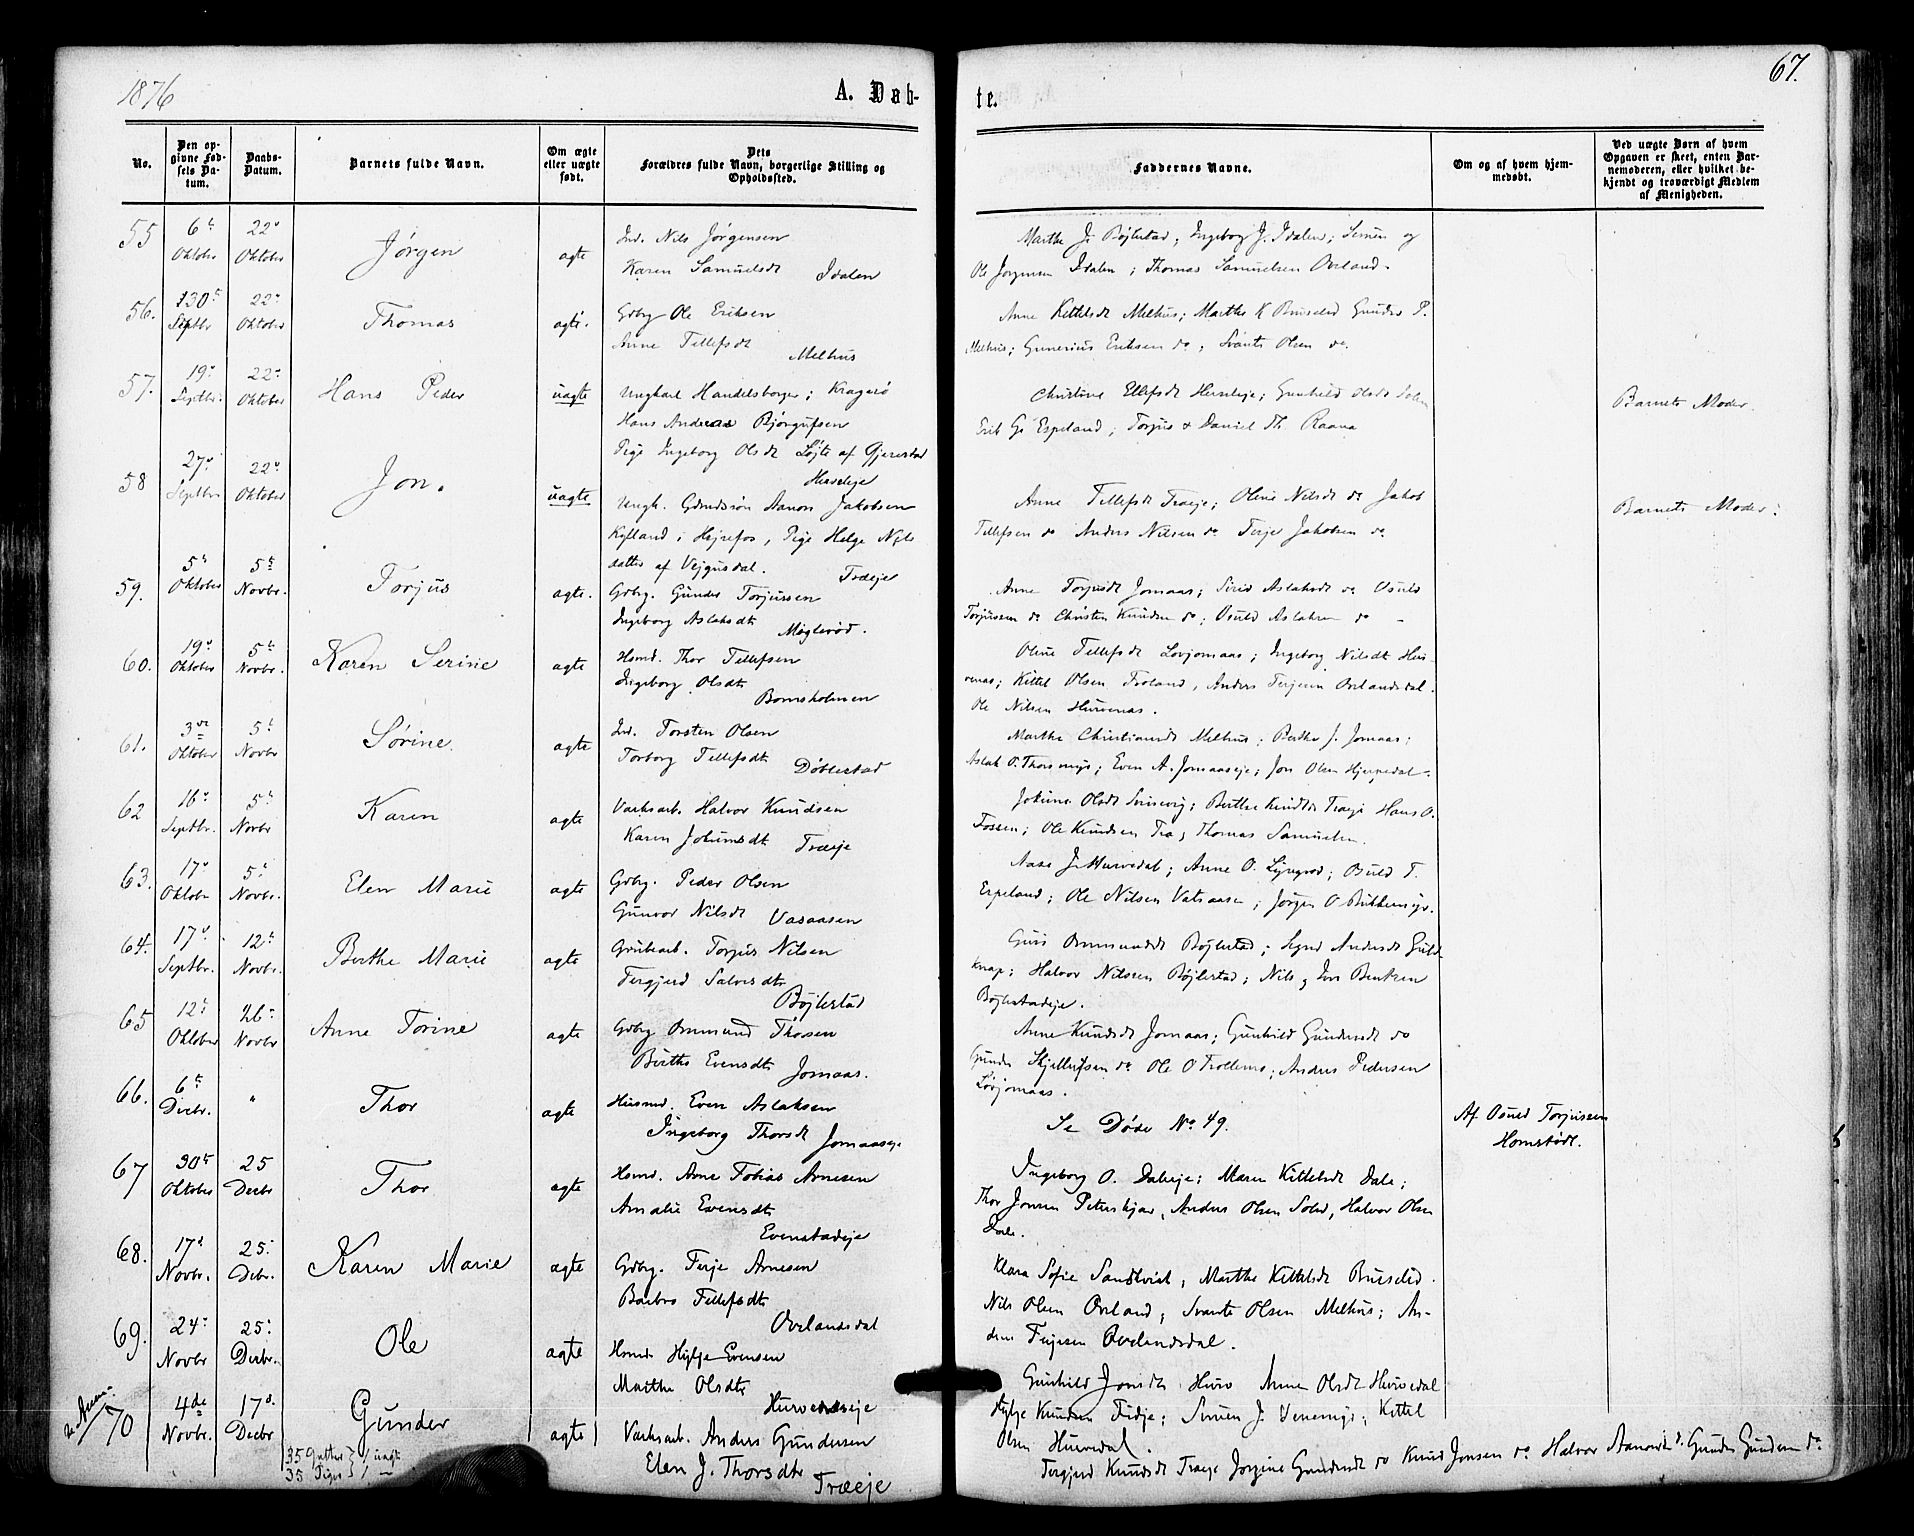 1876
A. Døb-
te.
67.
No.
Den op-
givne Fød-
sels Da-
tum.
Daabs-
Datum.
Barnets fulde Navn.
Om ægte
eller uægte
født.
Dets
Forældres fulde Navn, borgerlige Stilling og
Opholdssted.
Faddernes Navne.
Om og af hvem hjem-
medøbt.
Ved uægte Børn af hvem
Opgaven er skeet, enten Bar-
nemoderen, eller hvilket be-
kjendt og troværdigt Medlem
af Menigheden.
55
6te Oktober
22de Oktober
Jørgen
ægte
Ind. Nils Jørgensen
Karen Samuelsdt Idalen
Marthe J. Bøjlestad; Ingeborg J. Idalen; Simen og
Ole Jørgensen Idalen; Thomas Samuelsen Ovrland.
56.
30te Septbr
22de Oktober
Thomas
ægte.
Gdbg Ole Eriksen
Anne Tellefsdt
Melhus
Anne Kittelsdt Melhus; Marthe K Buiselid Gunder P.
Melhus; Gunerius Eriksen do; Svante Olsen do.
57.
19de Septbr.
22de Oktober
Hans Peder
uægte
Ungkarl Handelsborger; Kragerø
Hans Andreas Bjørgufsen
Pige Ingeborg Olsdt Løjte af Gjerestad
Herseleje
Christine Ellefsdt Herseleje; Gunhild Olsdt
Erik G. Espeland; Torjus & Daniel Th. Raana
Barnets Moder.
58
27de Septbr.
22de Oktober
Jon.
uægte
Ungk. Gdmdssøn Aanon Jakobsen
Kyland i Hejrefos, Pige Helge Nils
datter af Vejgusdal.
Træeje
Anne Tellefsdt Træeje; Oline Nilsdt do Jakob
Tellefsen do Anders Nilsen do Terje Jakobsen do
Barnets Moder.
59.
5te Oktober
5te Novbr.
Torjus
ægte.
Gdbg. Gunder Torjussen
Ingeborg Aslaksdt Møglerød.
Anne Torjusdt Jomaas; Siri Aslaksdt do Osuld
Torjussen do Christen Knudsen do; Osuld Aslaksen do
60.
19de Oktober
5te Novbr.
Karen Serine
ægte
Hsmd. Thor Tellefsen
Ingeborg Olsdt
Bomsholmen
Oline Tellefsdt Lovjomaas; Ingeborg Nilsdt Hur-
venas; Kittel Olsen Froland, Anders Terjesen Ovrlandsdal.
Ole Nilsen Hurvenas.
61.
3die Oktober
5te Novbr
Sørine.
ægte
Ind. Torsten Olsen
Torborg Tellefsdt
Døblestad
Marthe Christiansdt Melhus; Berthe J. Jomaas;
Aslak O. Thorsmyr; Even A. Jomaaseje; Jon Olsen Hjerpedal.
62
16de Septbr.
5te Novbr
Karen
ægte
Værksarb. Halvor Knudsen
Karen Johnnsdt Træeje
Jokime Olsdt; Berthe Knudsdt Træeje Hans O.
Fossen; Ole Knudsen Træ, Thomas Samuelsen.
63.
17de Oktober
5te Novbr.
Elen Marie
ægte
Gdbg. Peder Olsen
Gunvor Nilsdt Vasaasen
Aase J. Hurvedal; Anne O. Lyngrod; Osuld T.
Espeland; Ole Nilsen Vatsaasen; Jørgen O. Birkemyr.
64.
17de Septbr.
12te Novbr.
Berthe Marie
ægte
Grubearb. Torjus Nilsen
Tergjerd Salvesdt
Bøjlestad
Guri Ommundsdt Bøjlestad; Signe Andersdt Guld-
knap; Halvor Nilssen Bøjlestad; Nils, Bentsen
Bøjlestadeje.
65
12te Oktober
26de Novbr
Anne Torine
ægte
Gdbg Ommund Thorsen
Berthe Evensdt
Jomaas.
Anne Knudsdt Jomaas; Gunhild Gundersdt do
Gunder Kjellefsen do Ole O Trollems; Anders Pedersen
Lovjomaas.
66.
6te Decbr.
"
Thor
ægte
Husmd. Even Aslaksen
Ingeborg Thorsdt Jomaaseje
Se Døde No 49.
Af Osuld Torjussen
Homstødl.
67
30te Oktober
25 Decbr
Thor
ægte
Hsmd. Arne Tobias Arnesen
Amalie Evensdt
Evenstadeje
Ingeborg O. Daleeje; Maren Kittelsdt Dale;
Thor Jonsen Peterskjær, Anders Olsen, Halvor Olsen
Dale.
68.
17de Novbr.
25. Decbr.
Karen Marie
ægte
Gdbg. Terje Arnesen
Barbro Tellefsdt
Ovrlandsdal
Klara Sofie Sandkvist; Marthe Kittelsdt Buiselid.
Nils Olsen Ovrland; Svante Olsen Melhus; An-
ders Terjesen Ovrlandsdal.
69.
24de Novbr
25. Decbr.
Ole
ægte
Hsmd Hylje Evensen
Marthe Olsdt
Hurvenæseje
Gunhild Jonsdt Hurv Anne Olsdt Hurvedal
Hylje Knudsen; Simen J. Venemyr; Kittel
Olsen Hurvedal.
70
4de Novbr.
17de Decbr
Gunder
ægte
Værksarb. Anders Gundersen
Elen J. Thorsdt
Træeje
Tergjerd Knudsdt Træeje Jorgine Gundersdt do Knud Jonsen do Halvor Aanonsen do. Gunder Gundersen do
35 Gutter } 1 uægt
35 Piger } 1 —